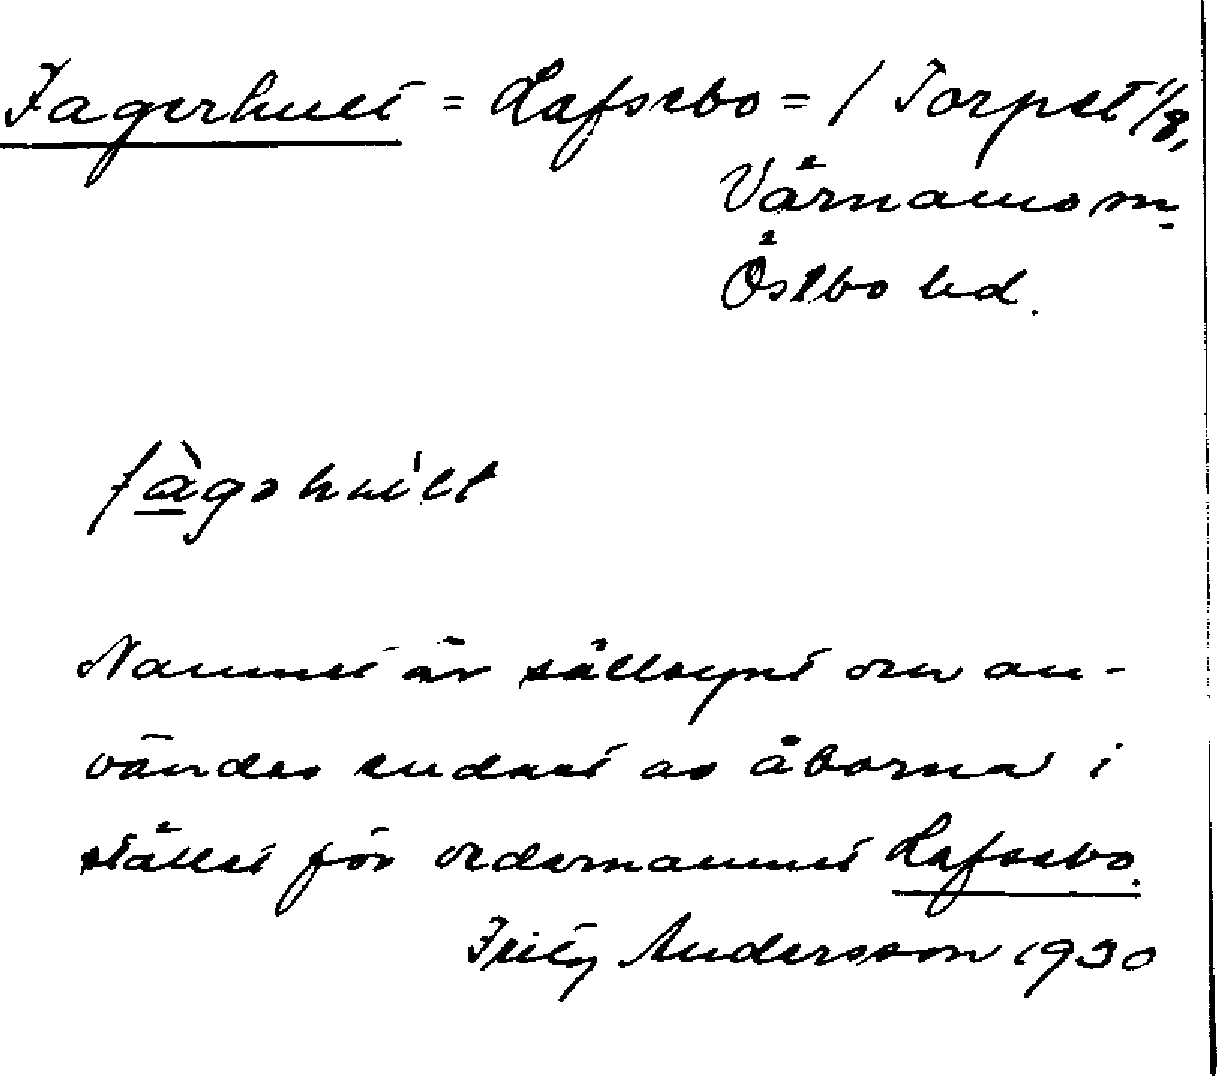 Fagerhult = Lafsebo = / Torpet 1/8,
Värnamo sn.
Östbo hd.
fàgəhult
Namnet är sällsynt och an-
vändes endast av åborna i
stället för sedernamnet Lafsebo.
Fritz Andersson 1930